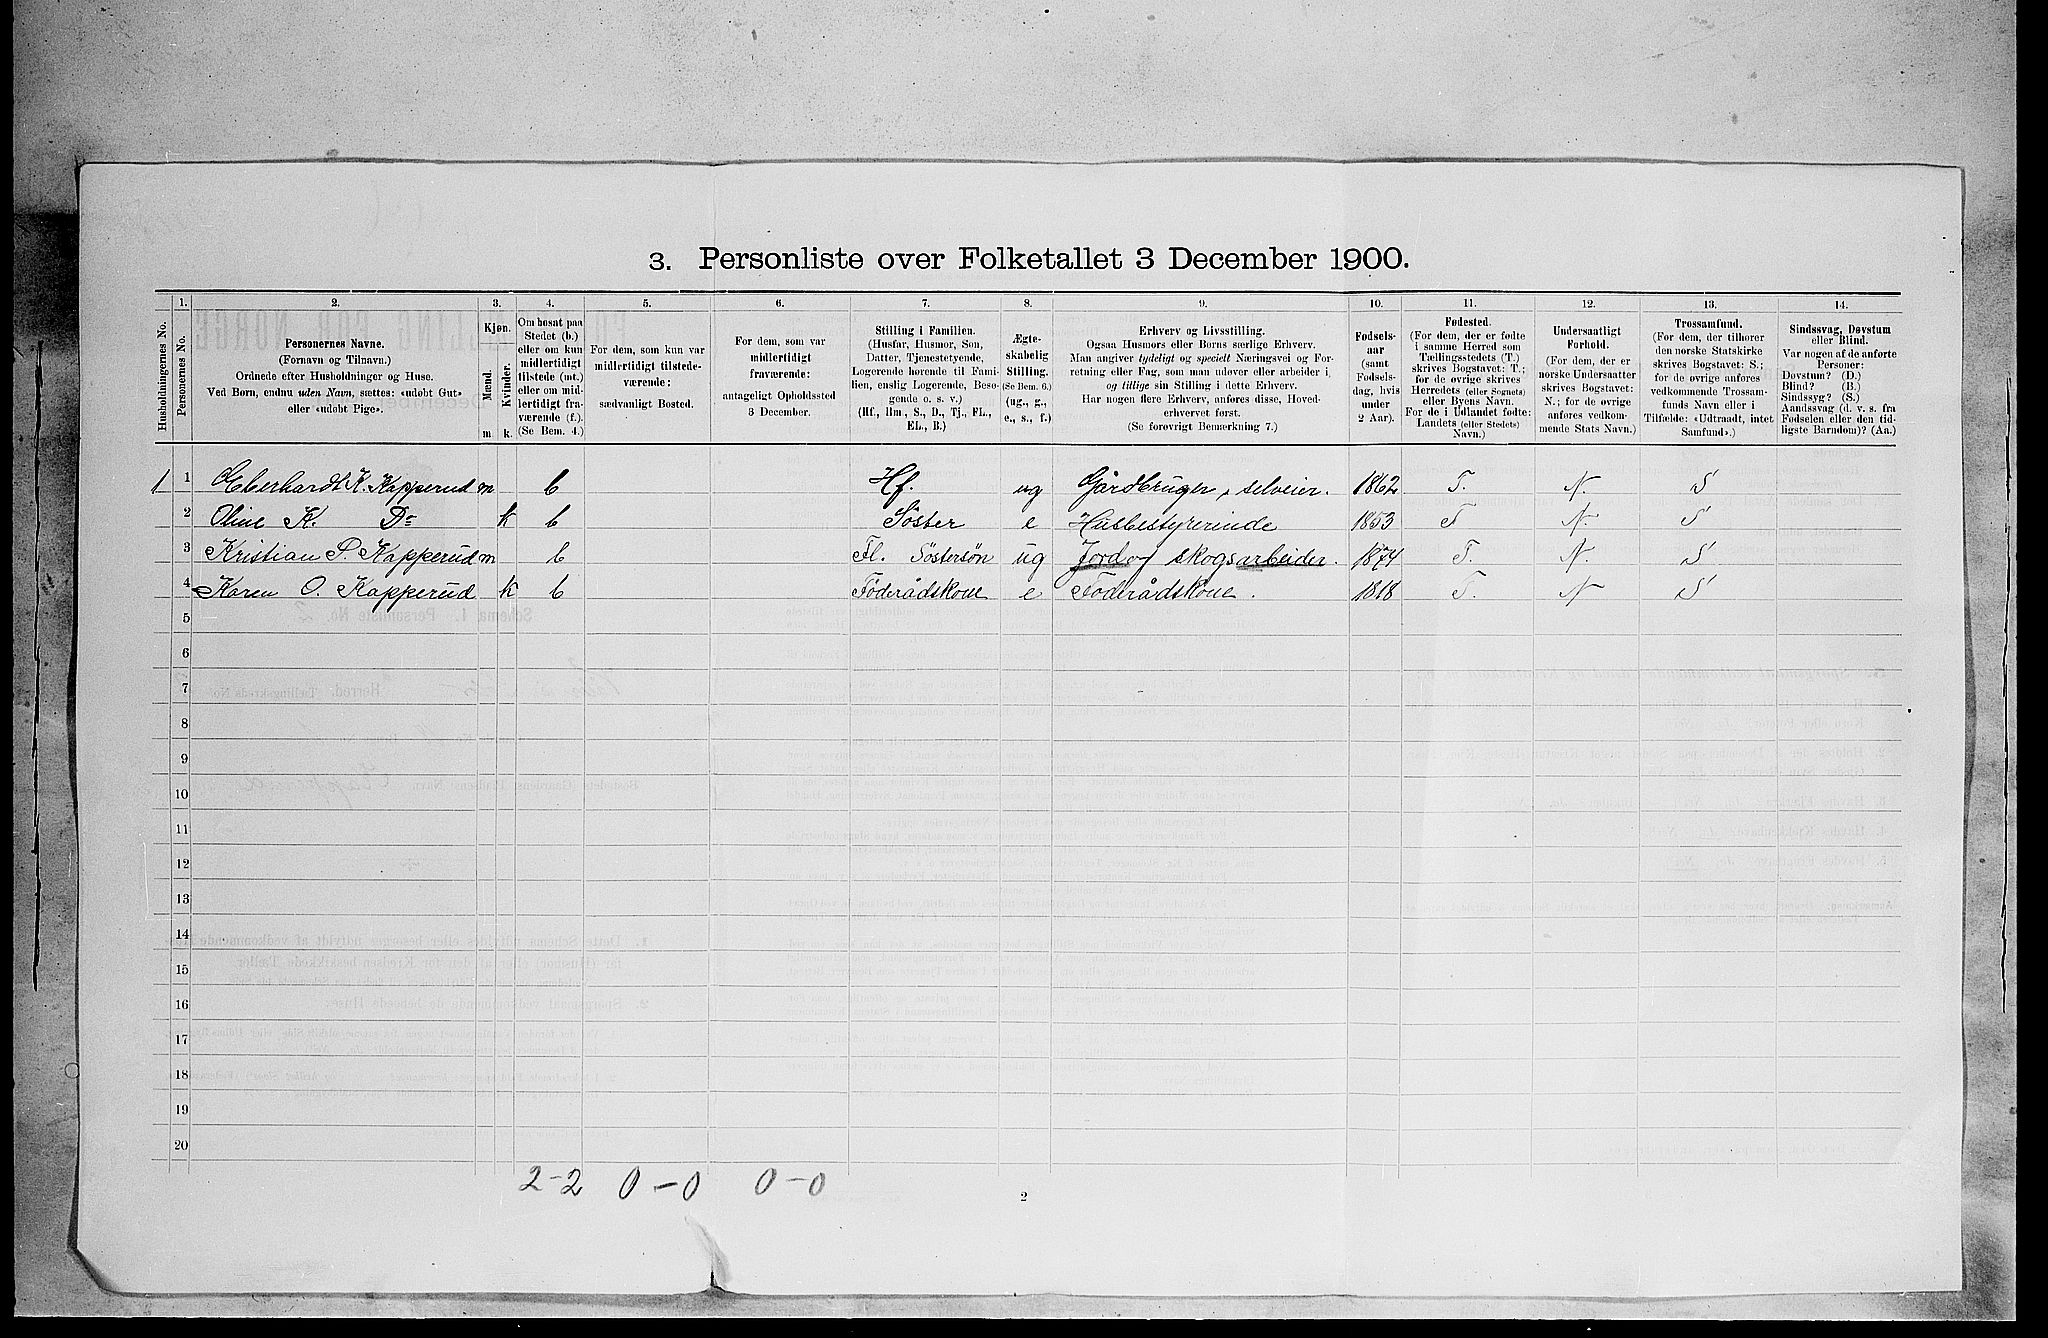 3. Personliste over Folketallet 3 December 1900.
Husholdningernes No.
1.
Personernes No.
2.
Personernes Navne.
(Fornavn og Tilnavn.)
Ordnede efter Husholdninger og Huse.
Ved Børn, endnu uden Navn, sættes: «udøbt Gut»
eller «udøbt Pige».
3.
Kjøn.
Mænd.
Kvinder.
m
k.
4.
Om bosat paa
Stedet (b.)
eller om kun
midlertidigt
tilstede (mt.)
eller om mid-
lertidigt fra-
værende (f.).
(Se Bem. 4.)
5.
For dem, som kun var
midlertidigt tilstede-
værende:
sædvanligt Bosted.
6.
For dem, som var
midlertidigt
fraværende:
antageligt Opholdssted
3 December.
7.
Stilling i Familien.
(Husfar, Husmor, Søn,
Datter, Tjenestetyende,
Logerende hørende til Fami-
lien, enslig Logerende, Besø-
gende o. s. v.)
(Hf., Hm., S., D., Tj., FL.,
EL., B.)
8.
Ægte-
skabelig
Stilling.
(Se Bem. 6.)
(ug., g.,
e., s., f.)
9.
Erhverv og Livsstilling.
Ogsaa Husmors eller Børns særlige Erhverv.
Man angiver tydeligt og specielt Næringsvei og For-
retning eller Fag, som man udøver eller arbeider i,
og tillige sin Stilling i dette Erhverv.
Har nogen flere Erhverv, anføres disse, Hoved-
erhvervet først.
(Se forøvrigt Bemærkning 7.)
10.
Fødsels-
aar
(samt
Fødsels-
dag, hvis
under
2 Aar).
11.
Fødested.
(For dem, der er fødte
i samme Herred som
Tællingsstedets (T.)
skrives Bogstavet: T.;
for de øvrige skrives
Herredets (eller Sognets)
eller Byens Navn.
For de i Udlandet fødte:
Landets (eller Stedets)
Navn.)
12.
Undersaatligt
Forhold.
(For dem, der er
norske Undersaatter
skrives Bogstavet:
N.; for de øvrige
anføres vedkom-
mende Stats Navn.)
13.
Trossamfund.
(For dem, der tilhører
den norske Statskirke
skrives Bogstavet: S.;
for de øvrige anføres
vedkommende Trossam-
funds Navn eller i
Tilfælde: «Udtraadt, intet
Samfund».)
14.
Sindssvag, Døvstum
eller Blind.
Var nogen af de anførte
Personer:
Døvstum? (D.)
Blind? (B.)
Sindssyg? (S.)
Aandssvag (d. v. s. fra
Fødselen eller den tid-
ligste Barndom)? (Aa.)
1 1 Eberhardt K. Kapperud m b Hf. ug Gårdbruger, selveier. 1862 T. N. S
2 Oline K. Do k b Söster e Husbestyrerinde 1853 T N. S
3 Kristian P. Kapperud m b Fl. Söstersön ug Jord og skogsarbeider. 1874 T. N. S
4 Karen O. Kapperud k b Föderådskone e Föderådskone. 1818 T. N S
5
6
7
8
9
10
11
12
13
14
15
16
17
18
19
20
2-2 0-0 0-0
2